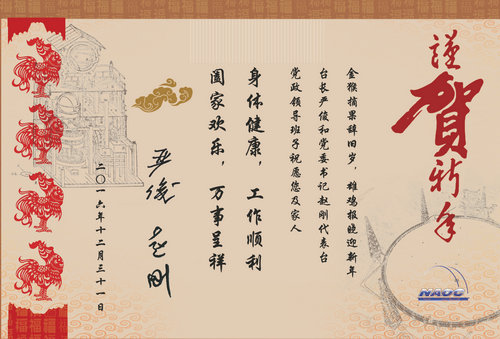 谨贺新年
金猴摘果辞旧岁，雄鸡报晓迎新年
台长严俊和党委书记赵刚代表台
党政领导班子祝愿您及家人
身体健康，工作顺利
阖家欢乐，万事呈祥
严俊
赵刚
二〇一六年十二月三十一日
NAOC